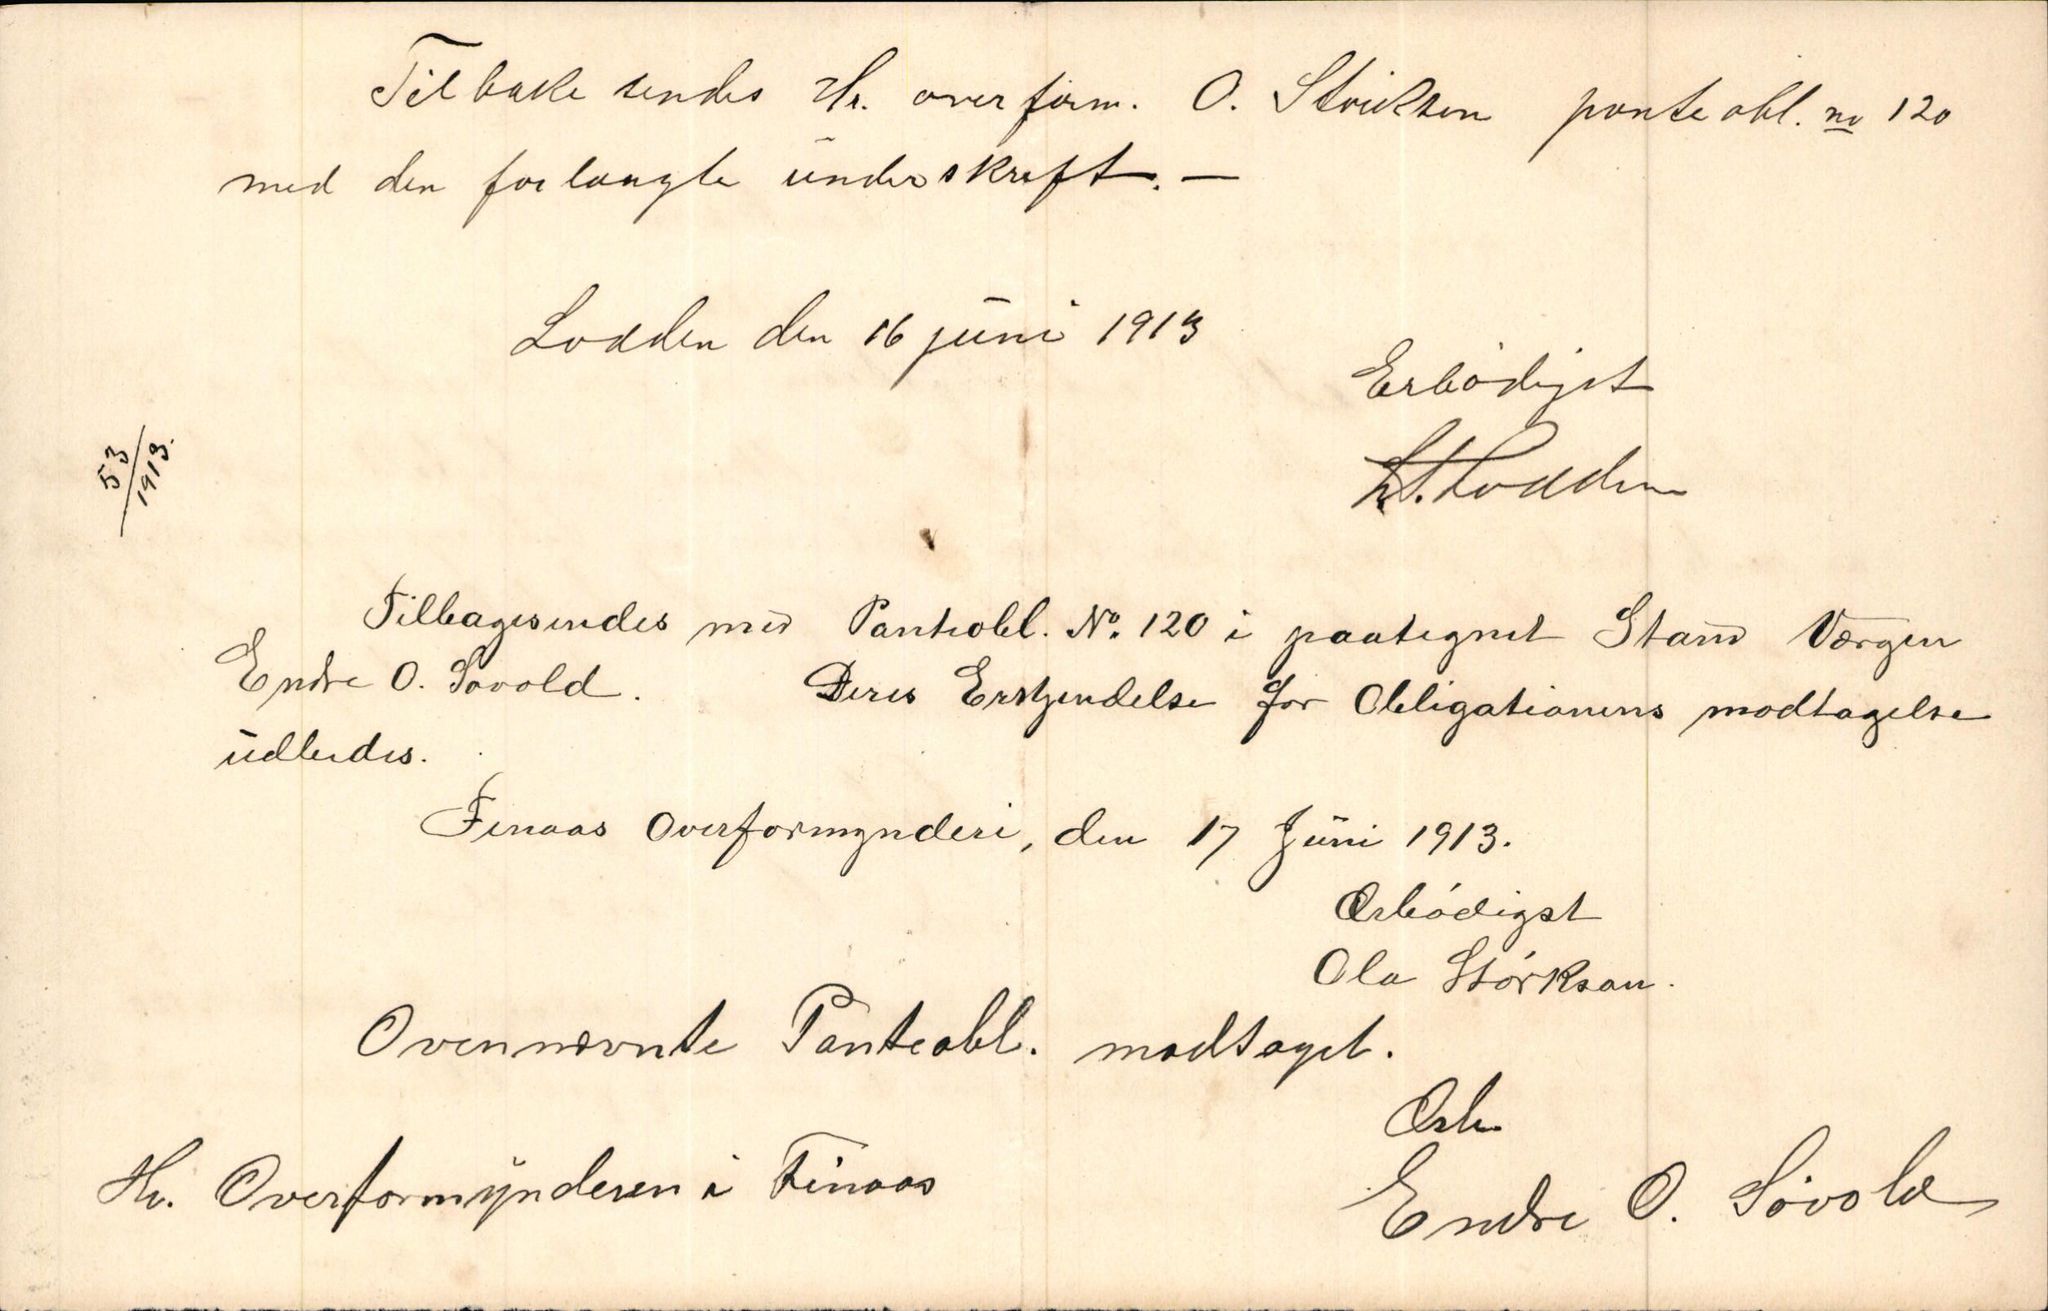 Tilbake sendes Hr. overform. O. Störksen pante obl. no 120
med den forlangte underskreft. —
Lodden den 16 juni 1913
Erbödigst
Lodden
53/1913.
Tilbagesendes med Panteobl. No. 120 i paategnet Stand Værgen
Endre O. Sovold. Deres Erkjendelse for Obligationens modtagelse
udbedes.
Finaas Overformynderi, den 17 Juni 1913.
Ærbódigst
Ola Störksen.
Ovennævnte Panteobl. modtaget.
Ærb.
Hr. Overformynderen i Finaas
Endre O. Sövold